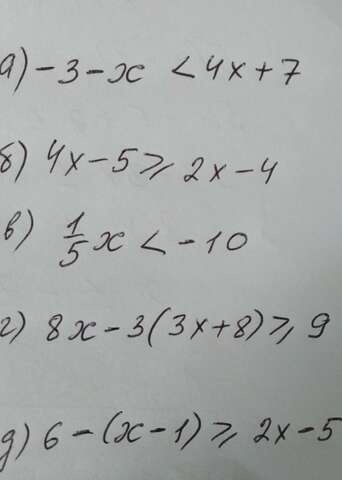 а) -3-x < 4x+7
б) 4x-5 ⩾ 2x-4
в) 1/5 x < -10
г) 8x-3(3x+8) ⩾ 9
д) 6-(x-1) ⩾ 2x-5